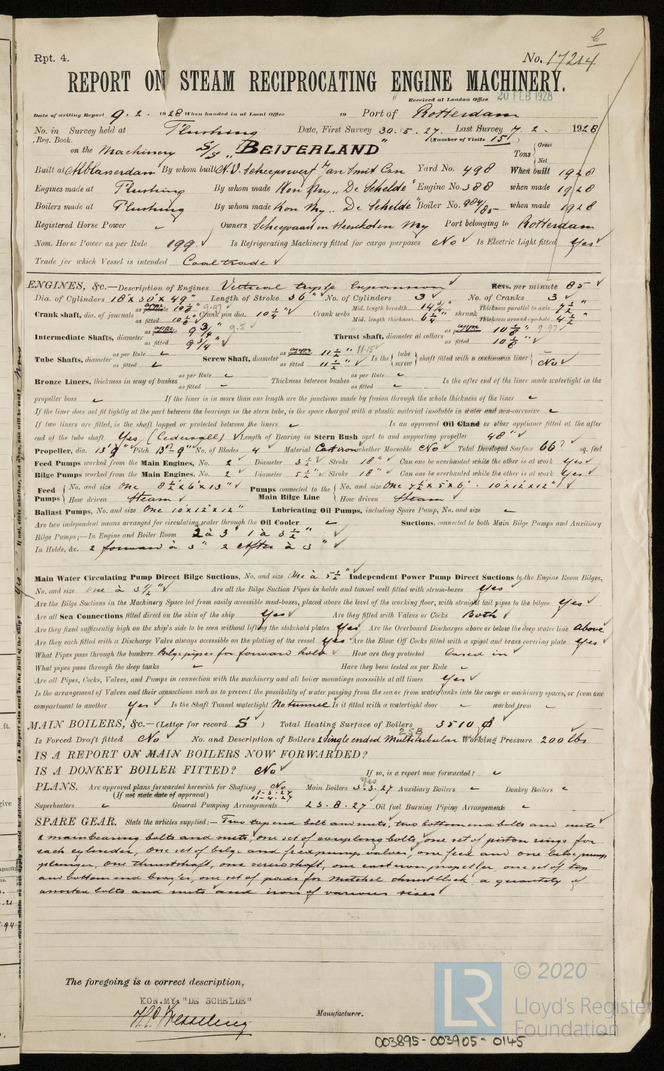 6
Rpt. 4. No. 17214
REPORT ON STEAM RECIPROCATING ENGINE MACHINERY.
Received at London Office 20 FEB 1928
Date of writing Report 9. 2. 1928 When handed in at Local Office 19 Port of Rotterdam
No. in Survey held at Flushing Date, First Survey 30.5.27. Last Survey 7. 2. 1928
Reg. Book. (Number of Visits 15)
on the Machinery S/S "BEIJERLAND" Tons Gross Net
Built at Alblasserdam By whom built N.V. Scheepswerf Jan Smit Czn Yard No. 498 When built 1928
Engines made at Flushing By whom made Kon. My. "De Schelde" Engine No. 388 when made 1928
Boilers made at Flushing By whom made Kon My. "De Schelde" Boiler No. 984/85 when made 1928
Registered Horse Power Owners Port belonging to Rotterdam
Nom. Horse Power as per Rule 199. Is Refrigerating Machinery fitted for cargo purposes No Is Electric Light fitted Yes
Trade for which Vessel is intended Coal trade
ENGINES, &c.—Description of Engines Vertical triple Expansion Revs. per minute 85
Dia. of Cylinders 18" x 30" x 49" Length of Stroke 36" No. of Cylinders 3 No. of Cranks 3
Crank shaft, dia. of journals as per Rule as fitted Crank pin dia. 10 ¼" Crank webs Mid. length breadth Mid. length thickness shrunk Thickness parallel to axis Thickness around eye-hole
Intermediate Shafts, diameter as per Rule as fitted 9 ¾" Thrust shaft, diameter at collars as per Rule as fitted
Tube Shafts, diameter as per Rule as fitted Screw Shaft, diameter as per Rule as fitted 11 ½" Is the tube screw shaft fitted with a continuous liner No
Bronze Liners, thickness in way of bushes as per Rule as fitted Thickness between bushes as per Rule as fitted Is the after end of the liner made watertight in the
propeller boss If the liner is in more than one length are the junctions made by fusion through the whole thickness of the liner
If the liner does not fit tightly at the part between the bearings in the stern tube, is the space charged with a plastic material insoluble in water and non-corrosive
If two liners are fitted, is the shaft lapped or protected between the liners Is an approved Oil Gland or other appliance fitted at the after
end of the tube shaft Yes (Cedervall) Length of Bearing in Stern Bush next to and supporting propeller 48"
Propeller, dia. 13' 9" Pitch 13' 9" No. of Blades 4 Material Cast iron whether Moveable No Total Developed Surface 66 sq. feet
Feed Pumps worked from the Main Engines, No. 2 Diameter 3 ½" Stroke 18" Can one be overhauled while the other is at work Yes
Bilge Pumps worked from the Main Engines, No. 2 Diameter Stroke 18" Can one be overhauled while the other is at work Yes
Feed Pumps No. and size One 8½ x 6 x 13" Pumps connected to the Main Bilge Line No. and size One 7½ x 5 x 6 - 10 x 12 x 12"
How driven Steam How driven Steam
Ballast Pumps, No. and size One 10 x 12 x 12" Lubricating Oil Pumps, including Spare Pump, No. and size
Are two independent means arranged for circulating water through the Oil Cooler Suctions, connected to both Main Bilge Pumps and Auxiliary
Bilge Pumps;—In Engine and Boiler Room 2 à 3" 1 à 3½"
In Holds, &c. 2 forward à 3" 2 After à 3"
Main Water Circulating Pump Direct Bilge Suctions, No. and size One à 5½" Independent Power Pump Direct Suctions to the Engine Room Bilges,
No. and size One à 3½" Are all the Bilge Suction Pipes in holds and tunnel well fitted with strum-boxes Yes
Are the Bilge Suctions in the Machinery Space led from easily accessible mud-boxes, placed above the level of the working floor, with straight tail pipes to the bilges Yes
Are all Sea Connections fitted direct on the skin of the ship Yes Are they fitted with Valves or Cocks Both
Are they fixed sufficiently high on the ship's side to be seen without lifting the stokehold plates Yes Are the Overboard Discharges above or below the deep water line Above
Are they each fitted with a Discharge Valve always accessible on the plating of the vessel Yes Are the Blow Off Cocks fitted with a spigot and brass covering plate Yes
What Pipes pass through the bunkers Bilge pipes for forward hold How are they protected Cased in
What pipes pass through the deep tanks Have they been tested as per Rule
Are all Pipes, Cocks, Valves, and Pumps in connection with the machinery and all boiler mountings accessible at all times Yes
Is the arrangement of Valves and their connections such as to prevent the possibility of water passing from the sea or from water tanks into the cargo or machinery spaces, or from one
compartment to another Yes Is the Shaft Tunnel watertight No tunnel Is it fitted with a watertight door worked from
MAIN BOILERS, &c.—(Letter for record S) Total Heating Surface of Boilers 3510
Is Forced Draft fitted No No. and Description of Boilers 2 Single ended Multitubular 2SB Working Pressure 200 lbs
IS A REPORT ON MAIN BOILERS NOW FORWARDED?
IS A DONKEY BOILER FITTED? No If so, is a report now forwarded?
PLANS. Are approved plans forwarded herewith for Shafting No Main Boilers Yes 3-3-27 Auxiliary Boilers Donkey Boilers
(If not state date of approval) 11-4-27
Superheaters General Pumping Arrangements 23-8-27 Oil fuel Burning Piping Arrangements
SPARE GEAR. State the articles supplied:— Two top end bolts and nuts, two bottom end bolts and nuts
2 main bearing bolts and nuts, one set of coupling bolts, one set of piston rings for
each cylinder, One set of bilge and feedpump valves, one feed and one bilge pump
plunger, One thrustshaft, one screwshaft, one cast iron propeller, one set of top
and bottom end brasses, one set of pads for Mitchel thrust block a quantity of
assorted bolts and nuts and iron of various sizes
The foregoing is a correct description,
KON. MY. "DE SCHELDE"
Manufacturer.
003895-003905-0145
LR © 2020
Lloyd's Register
Foundation